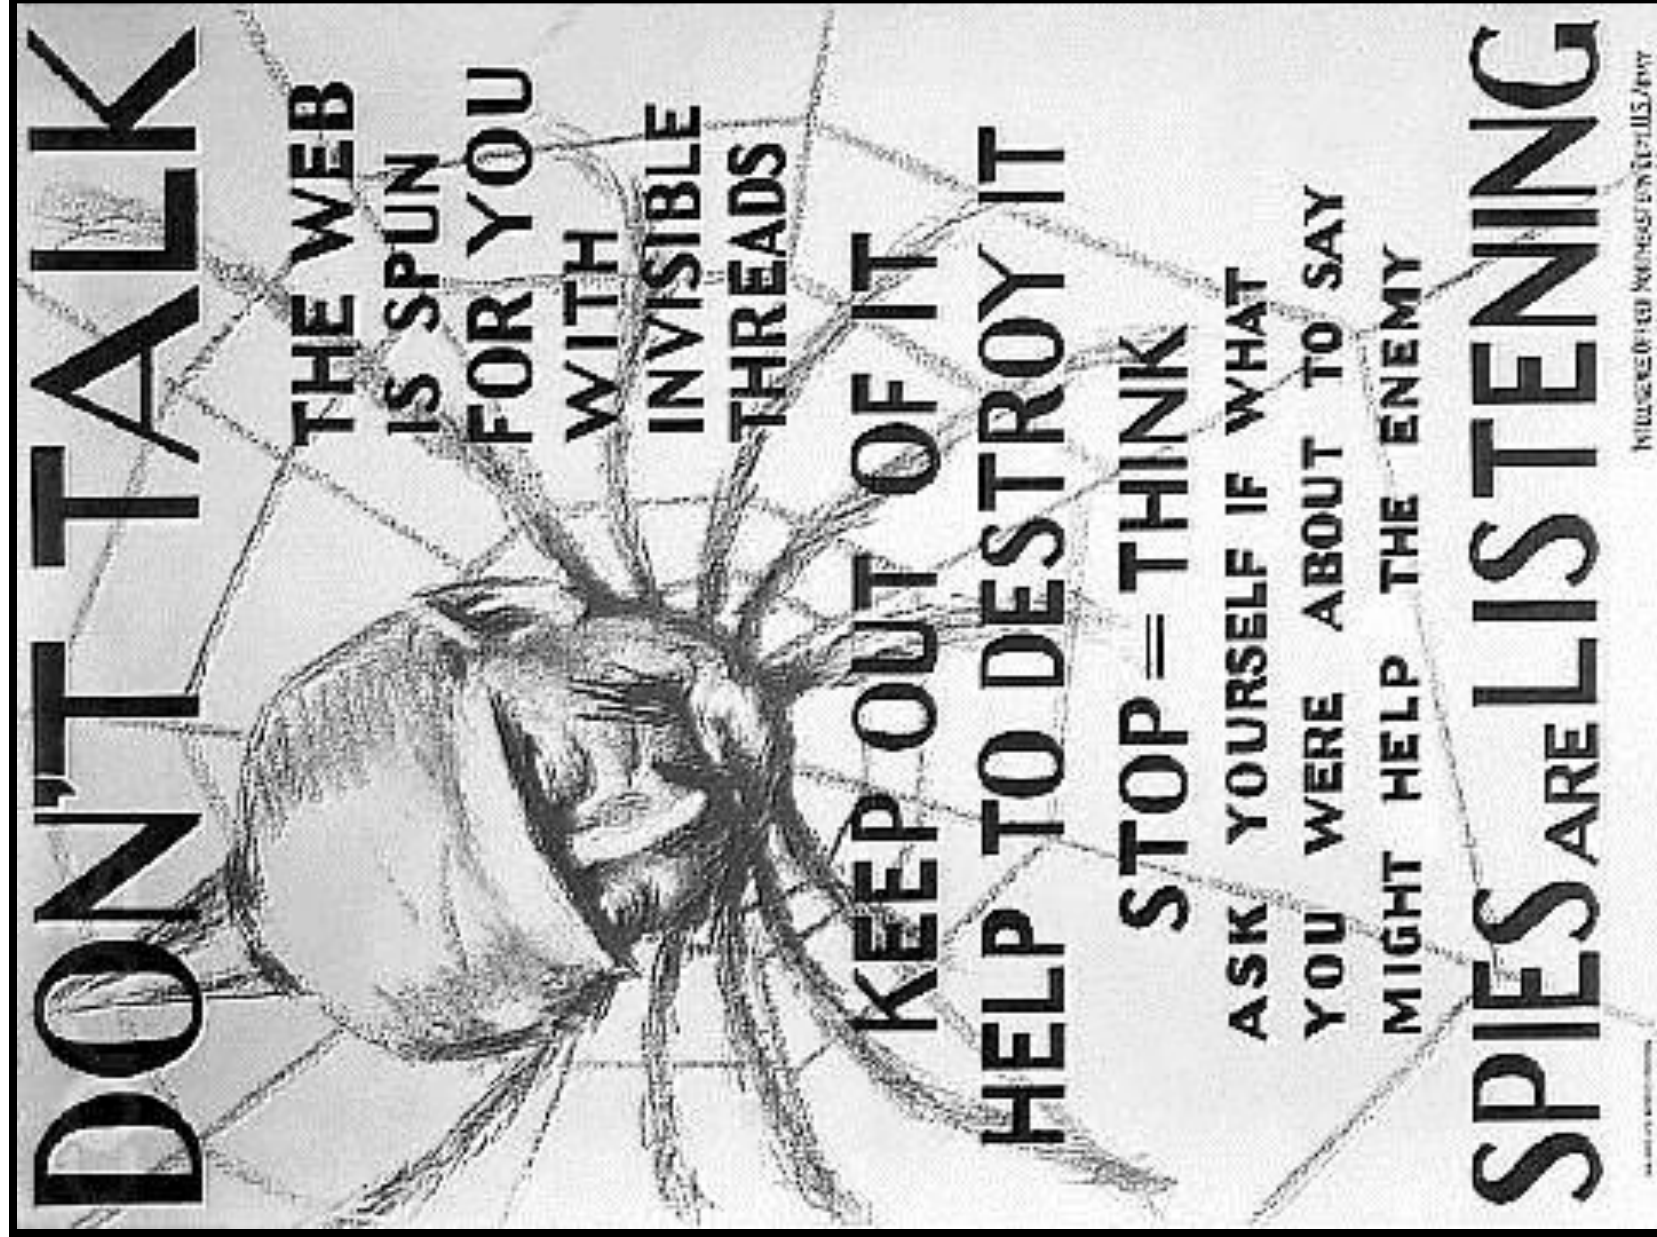 DON'T TALK
THE WEB
IS SPUN
FOR YOU
WITH
INVISIBLE
THREADS
KEEP OUT OF IT
HELP TO DESTROY IT
STOP = THINK
ASK YOURSELF IF WHAT
YOU WERE ABOUT TO SAY
MIGHT HELP THE ENEMY
SPIES ARE LISTENING